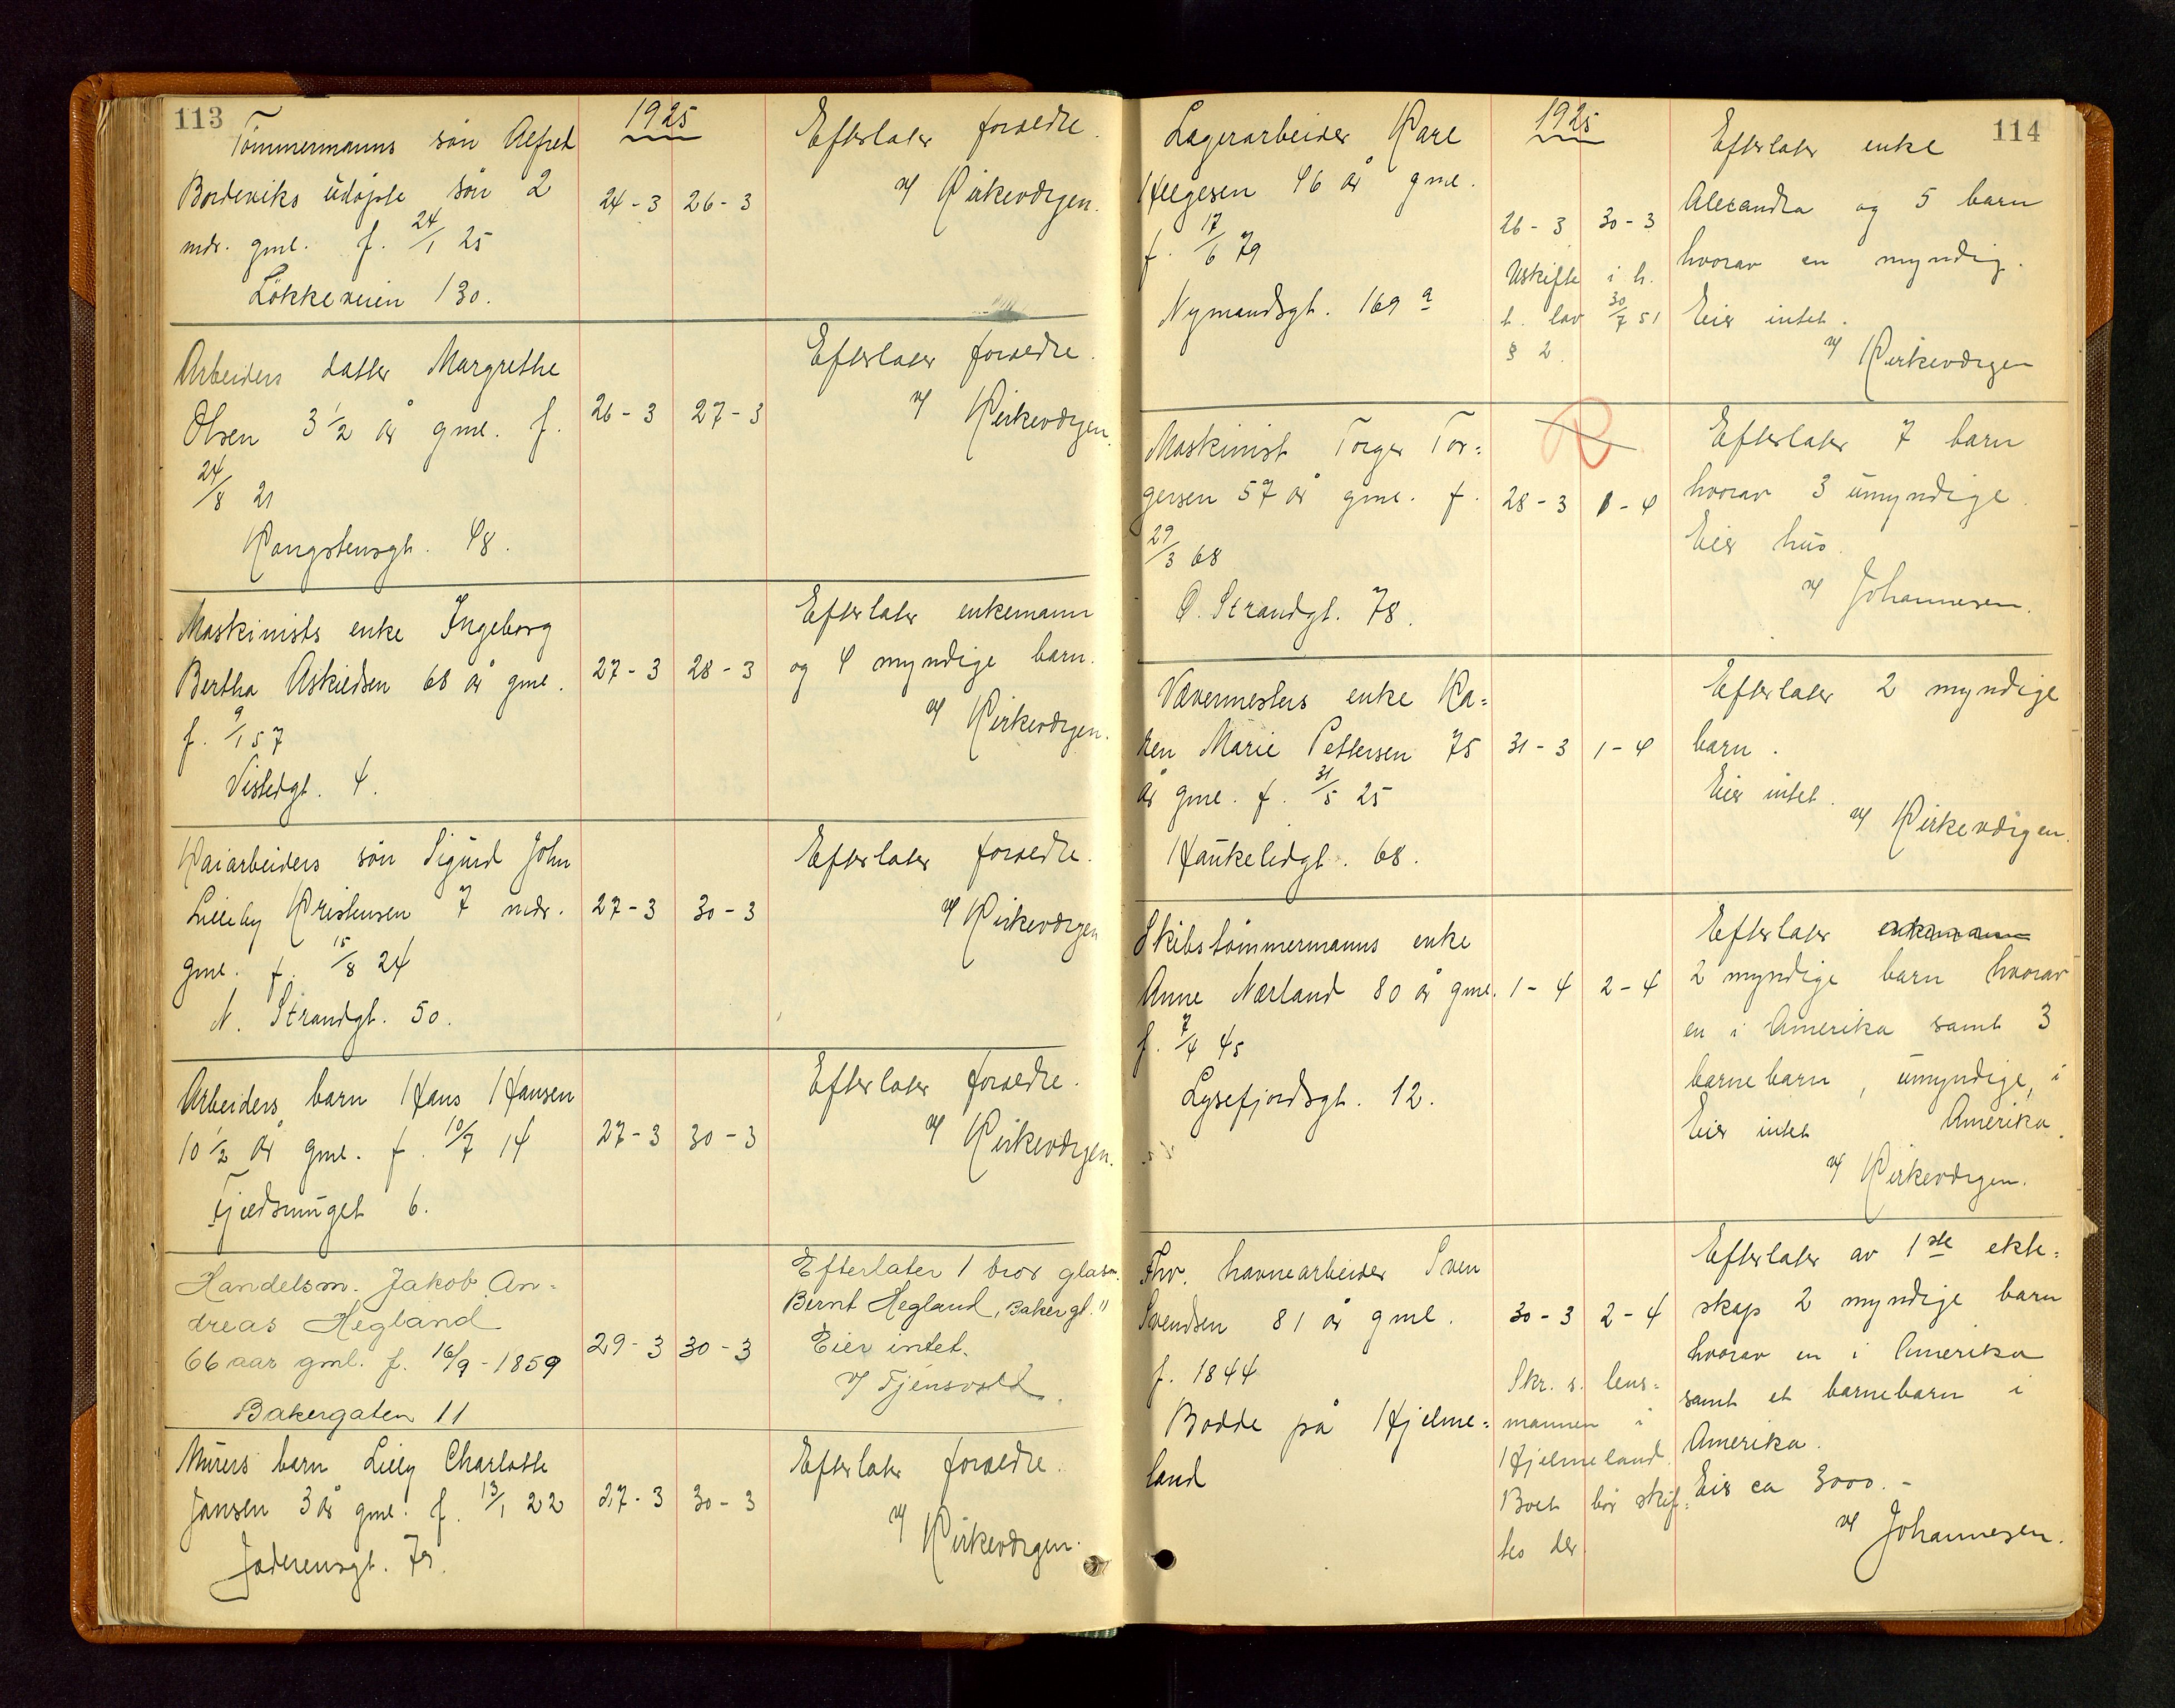 113
1925
Tömmermanns sön Alfred
Bordeviks üdöpte sön 2
mdr. gml. f. 24/1 25
Lökkeveien 130.
24-3 26-3
Efterlater forældre.
v/ Kirkeværgen.
Arbeiders datter Margrethe
Olsen 3 1/2 år gml. f.
24/8 21
Kongstensgt. 48.
26-3 27-3
Efterlater forældre.
v/ Kirkeværgen.
Maskinists enke Ingeborg
Bertha Askildsen 68 år gml.
f. 9/1 57
Vistedgt. 4.
27-3 28-3
Efterlater enkemann
og 4 myndige barn.
v/ Kirkeværgen.
Kaiarbeiders sön Sigürd John
Lilleby Kristensen 7 mdr.
gml. f. 15/8 24
N. Strandgt. 50.
27-3 30-3
Efterlater forældre.
v/ Kirkeværgen
Arbeiders barn Hans Hansen
10 1/2 år gml. f. 10/7 14
Fjeldsmüget 6.
27-3 30-3
Efterlater forældre.
v/ Kirkeværgen.
Handelsm. Jakob An-
dreas Hegland
66 aar gml. f. 16/9-1859
Bakergaten 11
29-3 30-3
Efterlater 1 bror glasm.
Bernt Hegland, Bakergt. 11
Eier intet.
v/ Tjensvold.
Mürers barn Lilly Charlotte
Jansen 3 år gml. f. 13/1 22
Jæderensgt. 79.
27-3 30-3
Efterlater forældre.
v/ Kirkeværgen.
114
1925
Lagerarbeider Karl
Helgesen 46 år gml.
f. 17/6 79
Nymandsgt. 169 a
26-3 30-3
Uskifte i h.
t. lov 30/7 51
§ 2.
Efterlater enke
Alexandra og 5 barn
hvorav en myndig.
Eier intet.
v/ Kirkeværgen
Maskinist Torger Tor=
gersen 57 år gml. f.
29/3 68
Ö. Strandgt. 78.
R
28-3 1-4
Efterlater 7 barn
hvorav 3 ümyndige
Eier hüs.
v/ Johannesen.
Vævermesters enke Ka=
ren Marie Pettersen 75
år gml. f. 31/5 25
Haükelidgt. 68.
31-3 1-4
Efterlater 2 myndige
barn.
Eier intet.
v/ Kirkeværgen.
Skibstömmermanns enke
Anne Nærland 80 år gml.
f. 7/4 45
Lysefjordsgt. 12.
1-4 2-4
Efterlater enkemann
2 myndige barn hvorav
en i Amerika samt 3
barnebarn, ümyndige, i
Eier intet Amerika.
v/ Kirkeværgen.
Fhv. havnearbeider Sven
Svendsen 81 år gml.
f. 1844
Bodde på Hjelme=
land
30-3 2-4
Skr. s. lens=
mannen i
Hjelmeland.
Boet bör skif=
tes der.
Efterlater av 1ste ekte=
skap 2 myndige barn
hvorav en i Amerika
samt et barnebarn i
Amerika.
Eier ca 3000.-
v/ Johannesen.